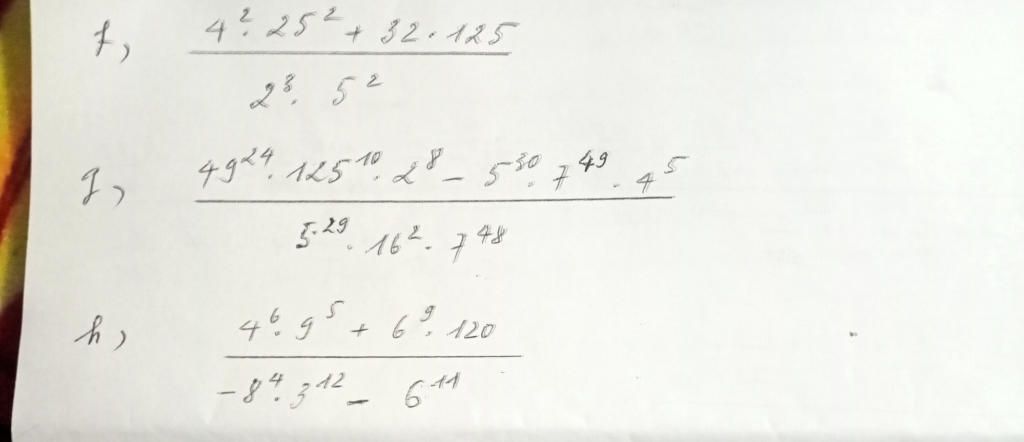 f, (4²·25² + 32·125) / (2³·5²)
g, (49²⁴·125¹⁰·2⁸ − 5³⁰·7⁴⁹·4⁵) / (5²⁹·16²·7⁴⁸)
h, (4⁶·9⁵ + 6⁹·120) / (−8⁴·3¹² − 6¹¹)